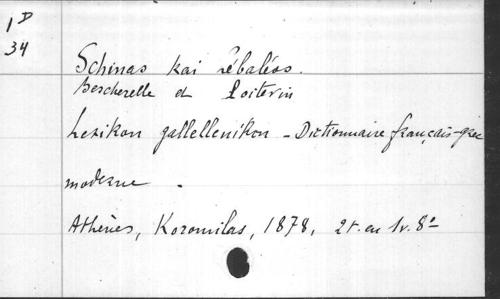 1 D
34
Schinas kai Lébaléos.
Bescherelle et Poitevin
Lexikon gallellenikon - Dictionnaire français-grec
moderne.
Athènes, Koromilas, 1878, 2 t. en 1 v. 8º